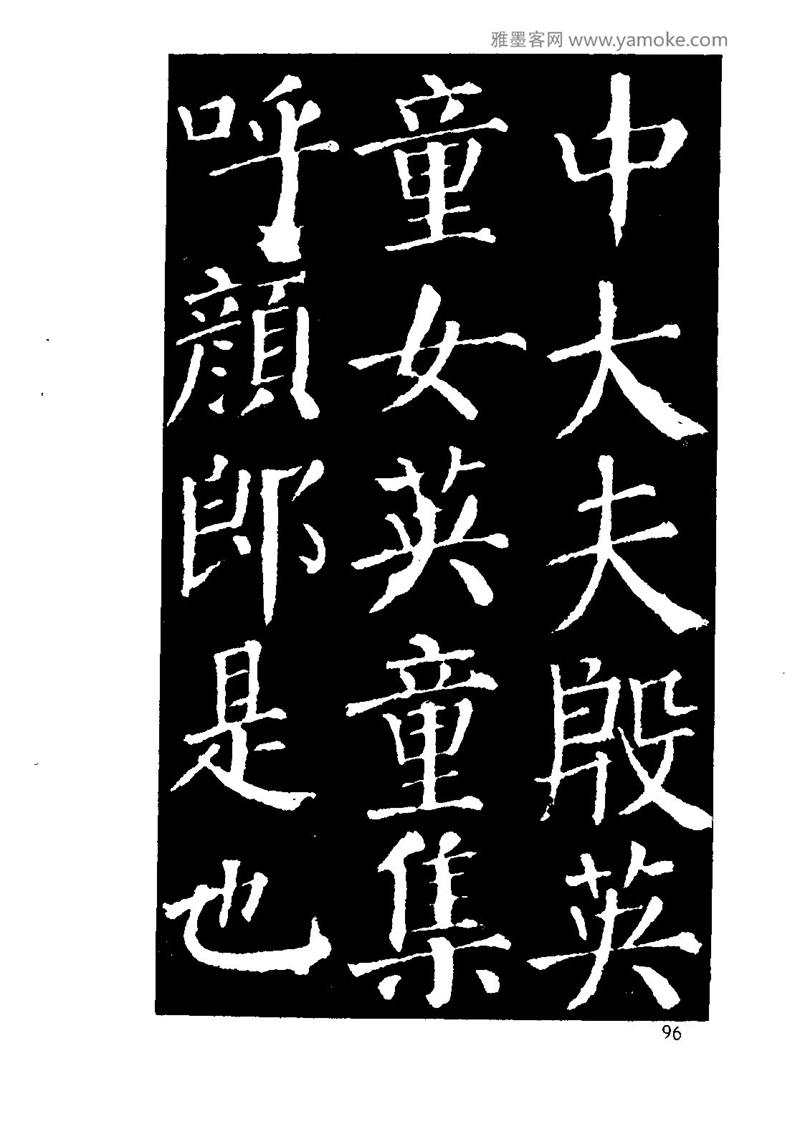 雅墨客网 www.yamoke.com
中大夫殷英
童女英童集
呼顔郎是也
96